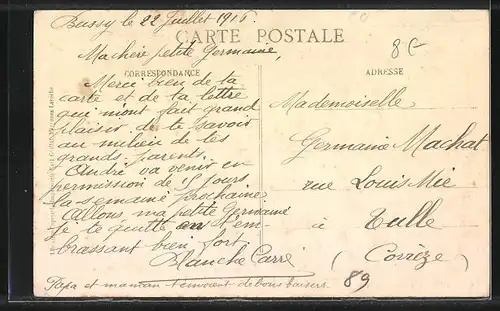 Bussy le 22 Juillet 1916.
CARTE POSTALE
8 €
Ma chère petite Germaine,
CORRESPONDANCE
Merci bien de ta
carte et de ta lettre
qui m'ont fait grand
plaisir de te savoir
au milieu de tes
grands parents.
André va venir en
permission de jours
la semaine prochaine.
Allons, ma petite Germaine
je te quitte en t'em-
brassant bien fort
Blanche Carré
Papa et maman t'envoient de bons baisers.
ADRESSE
Mademoiselle
Germaine Machat
rue Louis Mie
à Tulle
(Corrèze)
89